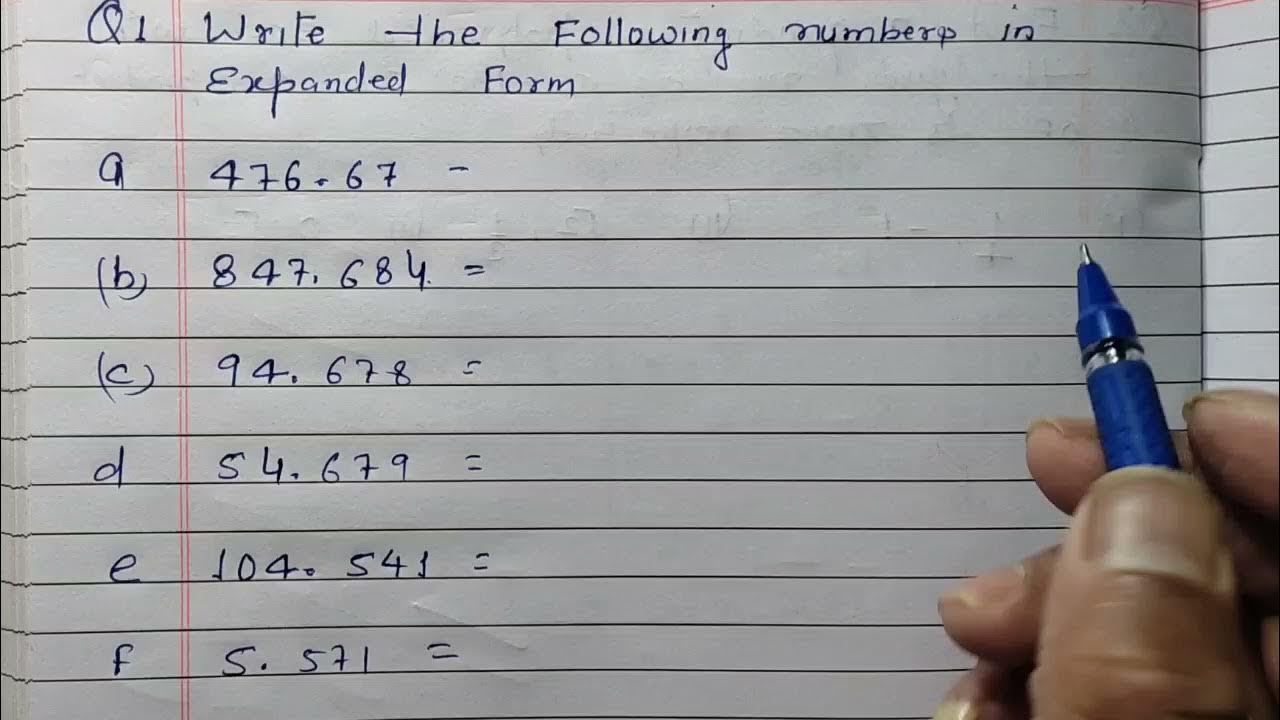 Q1 Write the Following numbers in
Expanded Form
a 476.67 -
(b) 847.684. =
(c) 94.678 =
d 54.679 =
e 104.541 =
f 5.571 =